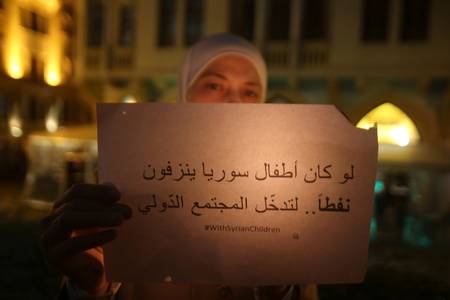 لو كان أطفال سوريا ينزفون
نفطاً.. لتدخّل المجتمع الدّولي
#WithSyrianChildren